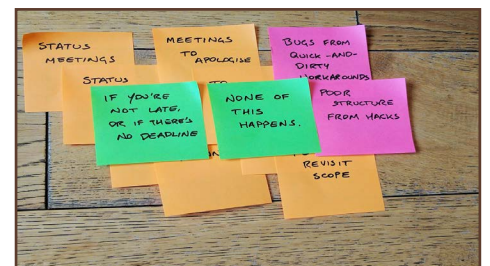 STATUS
MEETINGS
MEETINGS
TO
APOLOGISE
BUGS FROM
QUICK-AND-
DIRTY
WORKAROUNDS
STATUS
TO
IF YOU'RE
NOT LATE,
OR IF THERE'S
NO DEADLINE
NONE OF
THIS
HAPPENS.
POOR
STRUCTURE
FROM HACKS
REVISIT
SCOPE